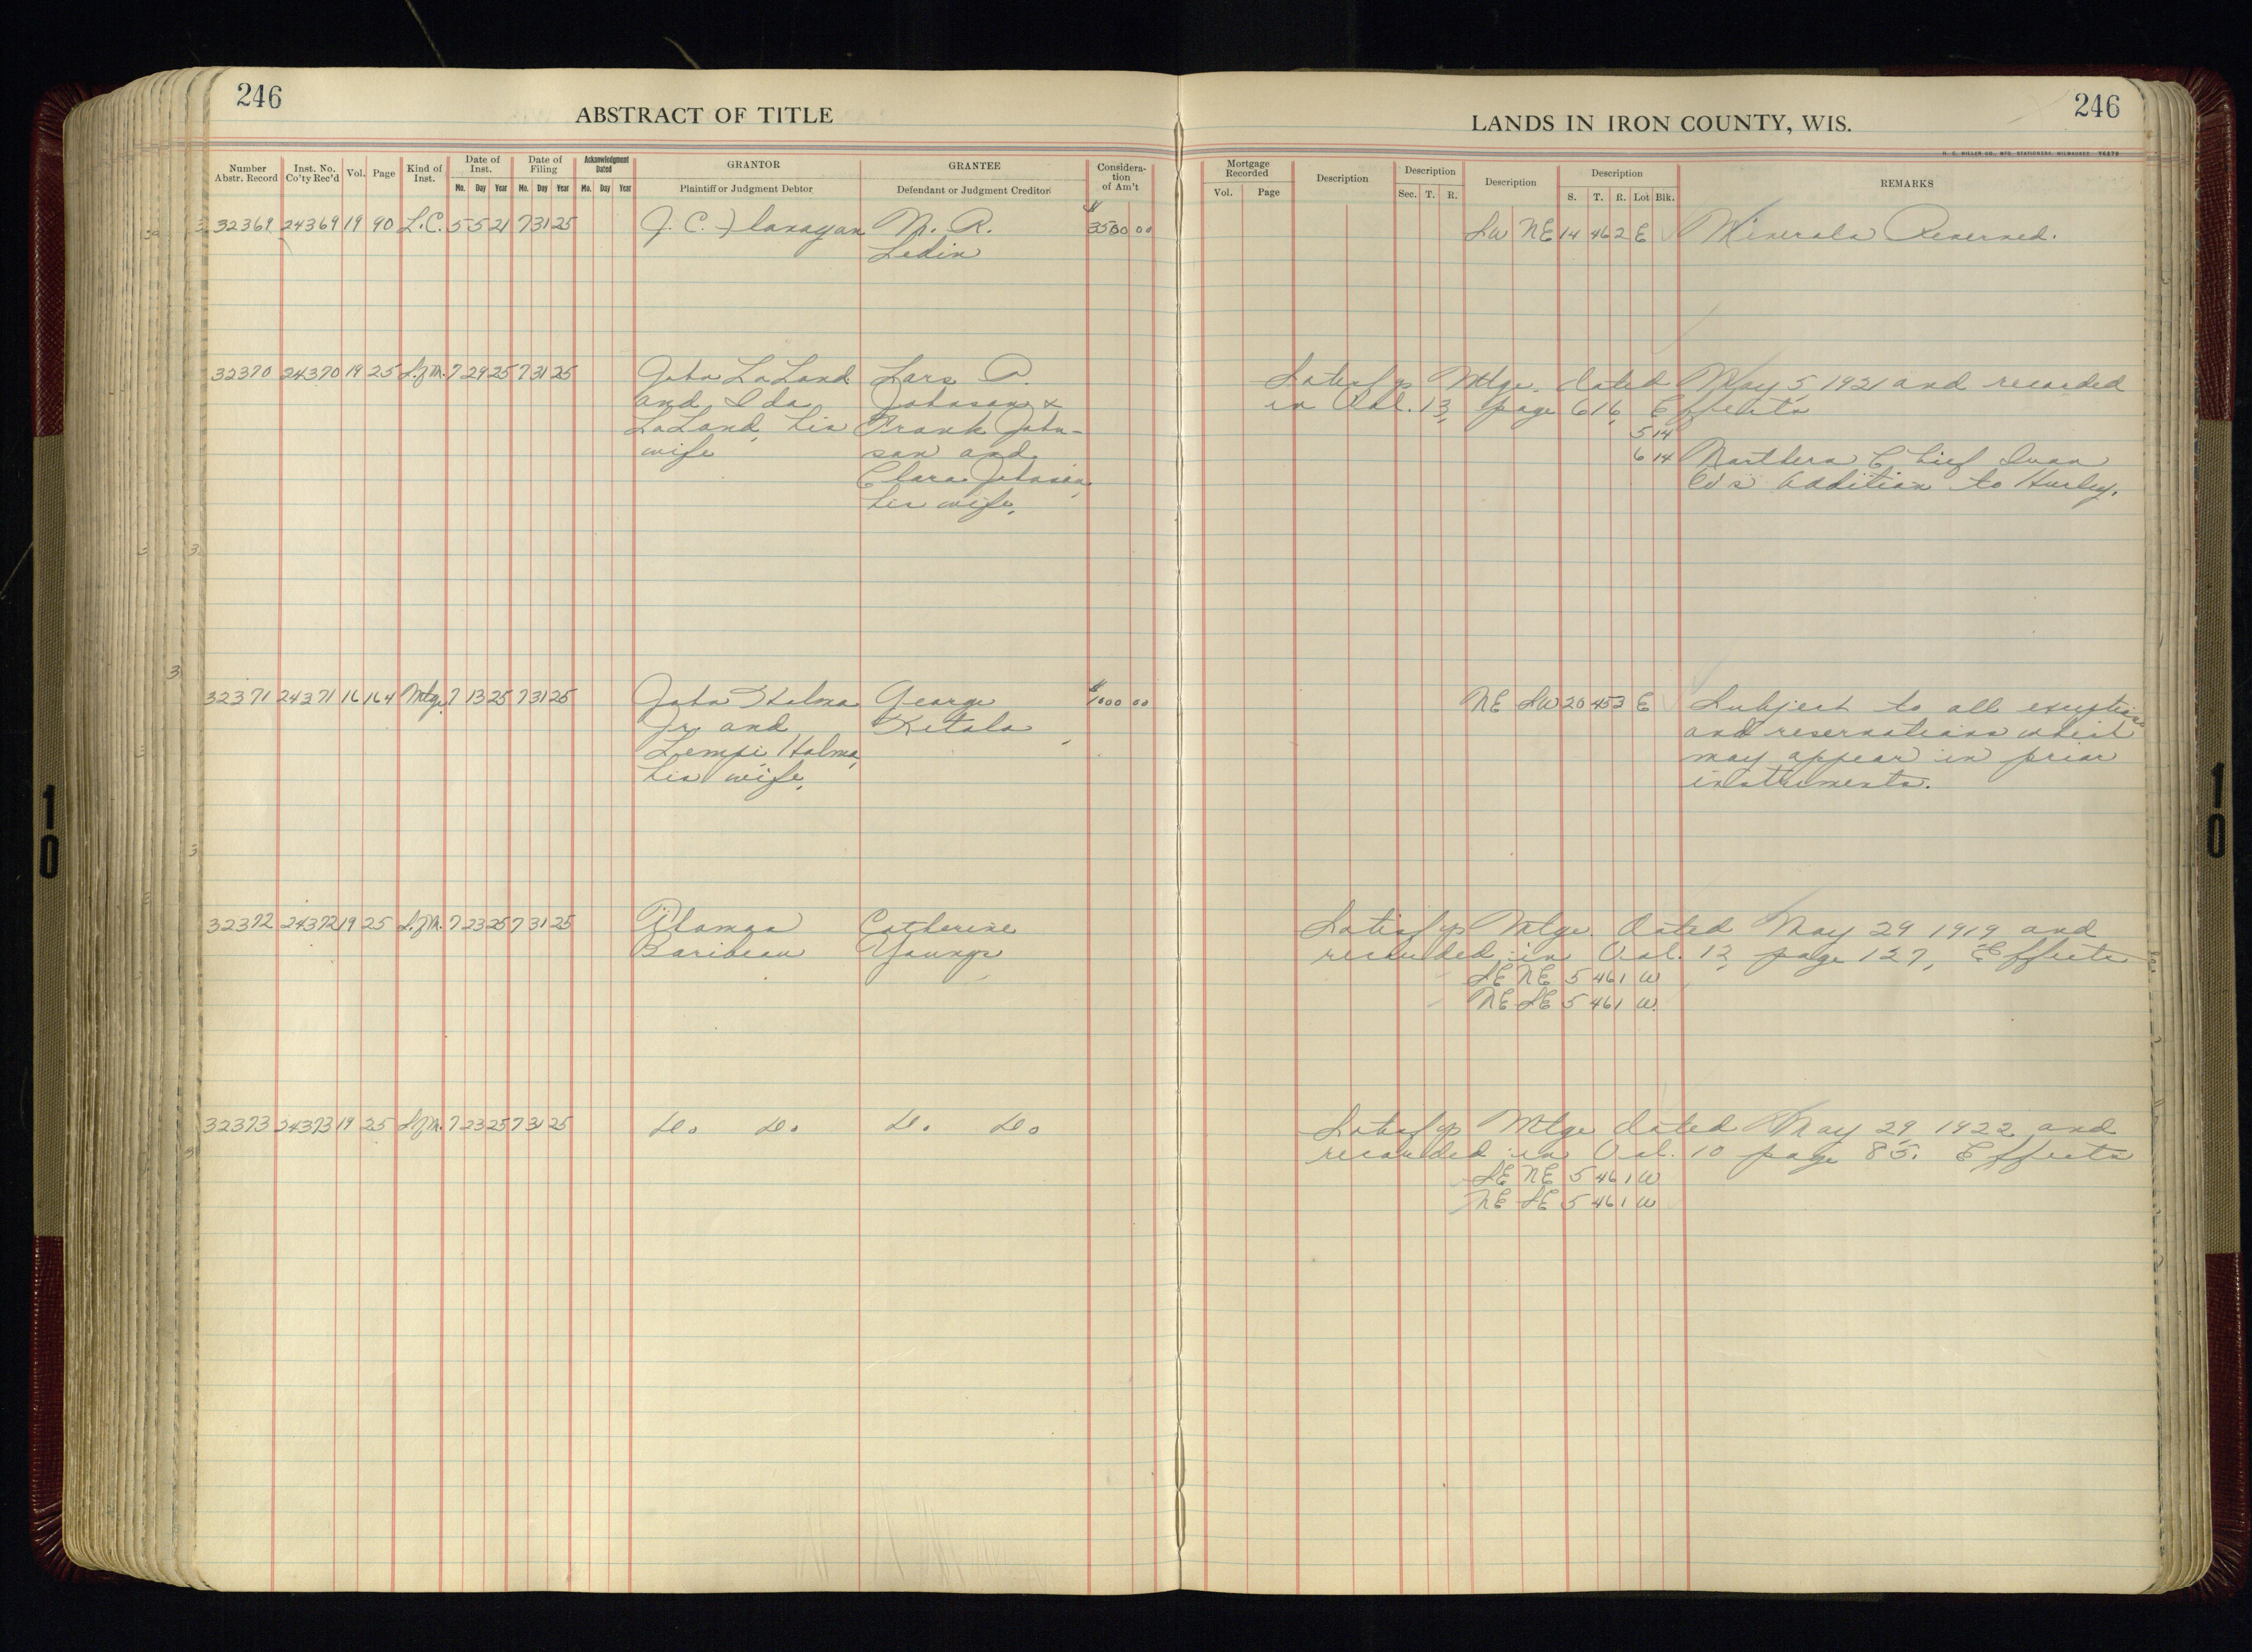 246
ABSTRACT OF TITLE
LANDS IN IRON COUNTY, WIS.
246
H. C. MILLER CO., MFG. STATIONERS, MILWAUKEE Y6279
Number Abstr. Record Inst. No. Co'ty Rec'd Vol. Page Kind of Inst. Date of Inst. Mo. Day Year Date of Filing Mo. Day Year Acknowledgment Dated Mo. Day Year GRANTOR Plaintiff or Judgment Debtor GRANTEE Defendant or Judgment Creditor Considera-tion of Am't
Mortgage Recorded Vol. Page Description Description Sec. T. R. Description Description S. T. R. Lot Blk. REMARKS
32369 24369 19 90 L.C. 5 5 21 7 31 25 J. C. Flanagan N. R. $3500 00 SW NE 14 46 2 E Minerals Reserved.
Ledin
32370 24370 19 25 S.of M. 7 29 25 7 31 25 John LaLand Lars A. Satisfys Mtge. dated May 5, 1921 and recorded
and Ida Johnson & in Vol. 13, page 616, Effects
LaLand, his Frank John- 5 14
wife son and 6 14 Northern Chief Iron
Clara Johnson, Co's addition to Hurley.
his wife.
32371 24371 16 164 Mtge. 7 13 25 7 31 25 John Halma George $1000 00 NE SW 20 45 3 E Subject to all exceptions
Jr. and Ketola and reservations which
Lempi Halma, may appear in prior
his wife. instruments.
32372 24372 19 25 S.of M. 7 23 25 7 31 25 Catherine Satisfys Mtge. dated May 29 1919 and
Baribeau Youngs recorded in Vol. 12, page 127, Effects
SE NE 5 46 1 W
NE SE 5 46 1 W.
32373 24373 19 25 S.of M. 7 23 25 7 31 25 do. do. do. do. Satisfys Mtge dated May 29, 1922 and
recorded in Vol. 10 page 85. Effects
SE NE 5 46 1 W
NE SE 5 46 1 W
10
10